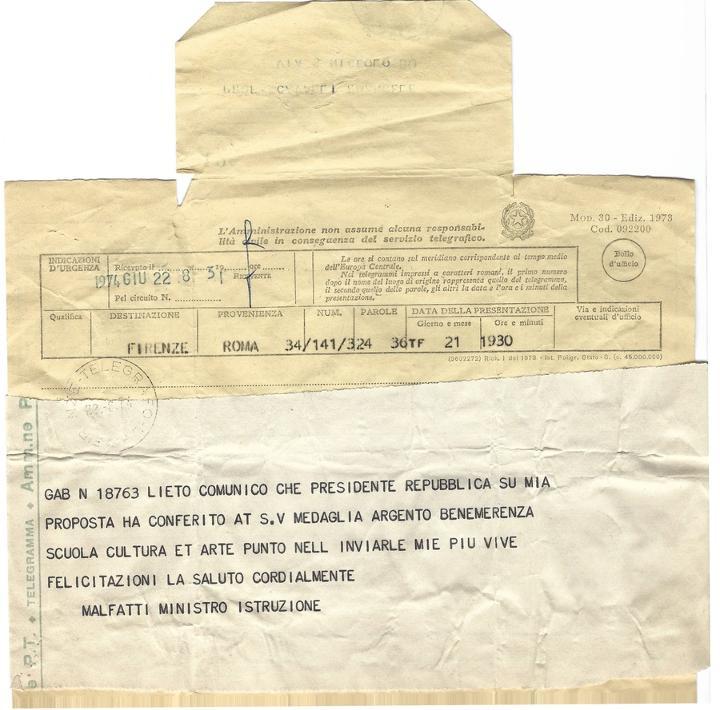 L'Amministrazione non assume alcuna responsabi-
lità civile in conseguenza del servizio telegrafico.
Mod. 30 - Ediz. 1973
Cod. 092200
INDICAZIONI
D'URGENZA
Ricevuto il
ore
1974 GIU 22 8 51
Pel circuito N.
Le ore si contano sul meridiano corrispondente al tempo medio
dell'Europa Centrale.
Nei telegrammi impressi a caratteri romani, il primo numero
dopo il nome del luogo di origine rappresenta quello del telegramma,
il secondo quello delle parole, gli altri la data e l'ora e i minuti della
presentazione.
Bollo
d'ufficio
Qualifica DESTINAZIONE PROVENIENZA NUM. PAROLE DATA DELLA PRESENTAZIONE Via e indicazioni
eventuali d'ufficio
Giorno e mese Ore e minuti
FIRENZE ROMA 34/141/324 36TF 21 1930
TELEGRAFO
e P.T. TELEGRAMMA Amm.ne P
GAB N 18763 LIETO COMUNICO CHE PRESIDENTE REPUBBLICA SU MIA
PROPOSTA HA CONFERITO AT S.V MEDAGLIA ARGENTO BENEMERENZA
SCUOLA CULTURA ET ARTE PUNTO NELL INVIARLE MIE PIU VIVE
FELICITAZIONI LA SALUTO CORDIALMENTE
MALFATTI MINISTRO ISTRUZIONE